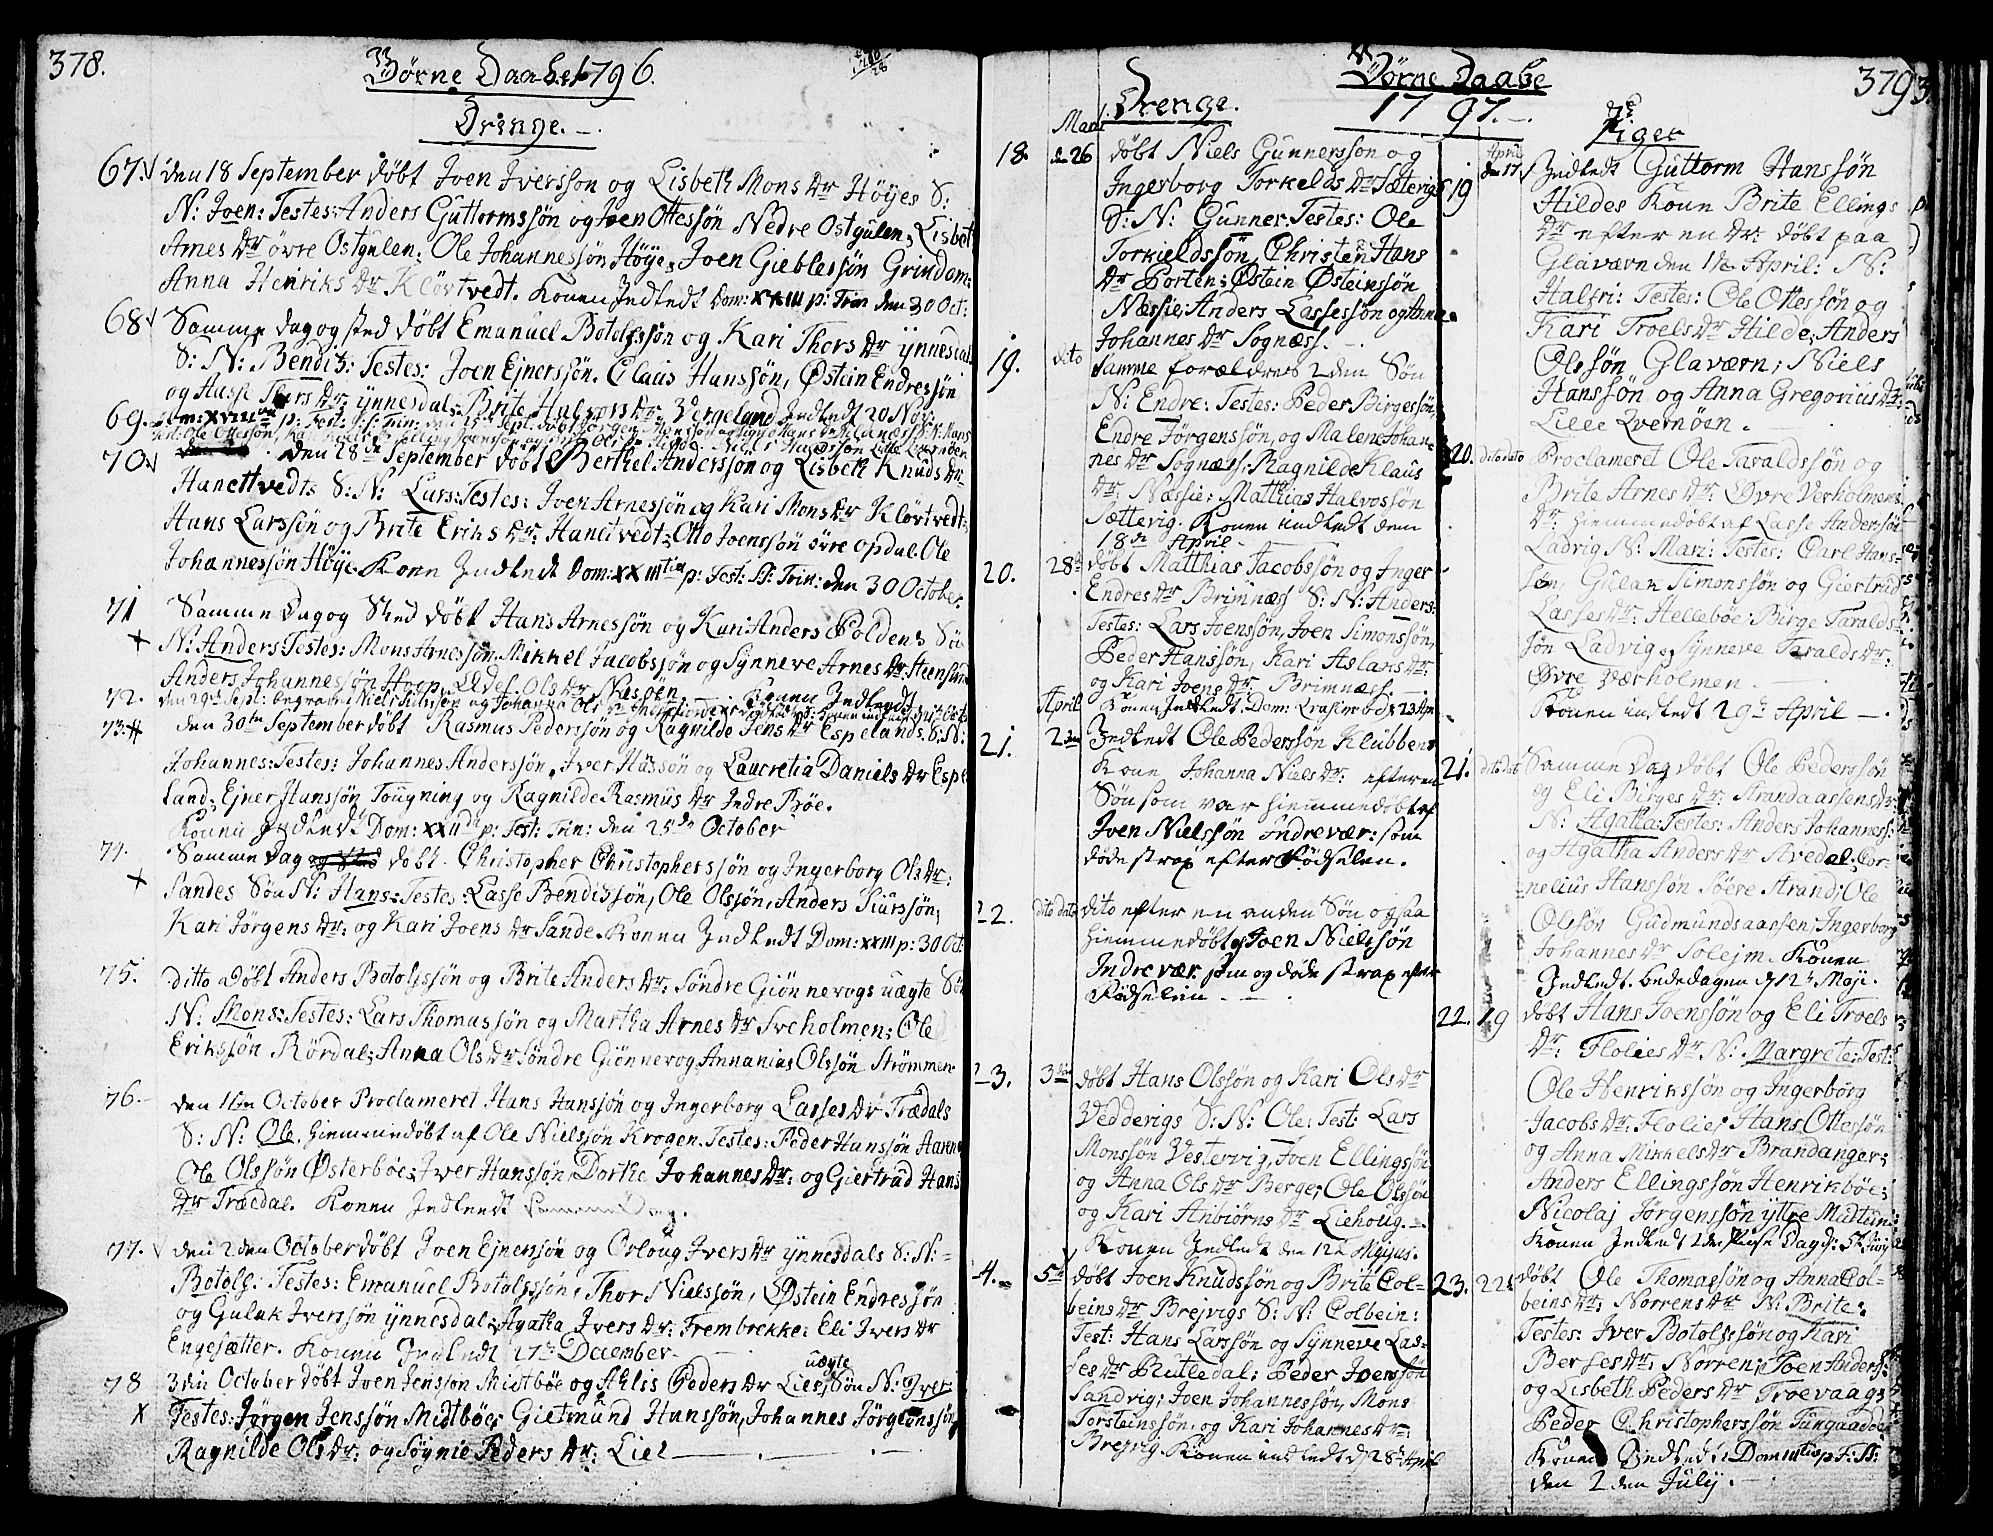 378.
Børne Daabe 1796.
Drenge.
67. den 18 September døbt Joen Iversson og Lisbeth Mons Dr Höyes S:
N: Joen: Testes: Anders Guttormssön og Joen Ottessön Nedre Ostgulen, Lisbet
Arnes Dr övre Ostgulen; Ole Johannessön Höye, Joen Gieblessön Grindem,
Anna Henriks Dr Klörtvedt. Konen Indledt Dom: XXIII p: Trin den 30 Oct:
68. Samme dag og sted döbt Emanuel Botolfssön og Kari Thors Dr ÿnnesdal
S: N: Bendix: Testes: Joen Ejnerssön. Claus Hanssön, Østein Endressön
og Aase Thors Dr: ÿnnesdal; Brite Halvors Dr: Vergeland Indledt 20 Nov:
69.
70. den 28de September döbt Berthel Anderssön og Lisbeth Knuds Dr
Hanettvedts S: N: Lars: Testes: Joen Arnessön og Kari Mons Dr Klörtvedt;
Hans Larssön og Brite Eriks Dr: Hanetvedt; Otto Joenssön övre opdal. Ole
Johannessön Höye. Konen Indledt Dom: XXIII tia p: Fest: S: Trin: den 30 October.
71 Samme Dag og Sted döbt Hans Arnessön og Kari Anders Poldens Sön
N: Anders: Testes: Mons Arnessön, Mikkel Jacobssön og Synneve Arnes Dr Steensund
Anders Johannessön Hoep. Ols Dr Konen Indledt
72.
73. den 30te September döbt Rasmus Pederssön og Ragnilde Jens Dr Espelands. S: N:
Johannes: Testes: Johannes Anderssön, Iver Hussön og Laucretia Daniels Dr Espe
land; Ejner Hanssön Tougning og Ragnilde Rasmus Dr Indre Böe.
Konen Indledt Dom: XXII p: Fest: Trin: den 25de October
74. Samme Dag og Sted döbt Christopher Christopherssön og Ingerborg Ols Dr:
Sandes Sön N: Hans: Testes: Lasse Bendixsön, Ole Olssön, Anders Siurssön;
Kari Jörgens Dr: og Kari Joens Dr Sande. Konen Indledt Dom: XXIII p: 30 Oct
75. ditto döbt Anders Botolfssön og Brite Anders Dr: Söndre Giönnevogs uægte Sön
N: Mons: Testes: Lars Thomassön og Martha Arnes Dr Sveholmen; Ole
Erikssön Rördal; Anna Ols Dr Söndre Giönnevog Annanias Olssön Strömmen
76. den 1ste October Proclameret Hans Hanssön og Ingerborg Lasses Dr Trædals
S: N: Ole. hiemmedöbt af Ole Nielssön Krogen. Testes: Peder Hanssön
Ole Olssön Østerböe; Iver Hanssön, Dorthe Johannes Dr: og Giertrud Hans
Dr Trædal. Konen Indledt Samme Dag.
77. den 2den October döbt Joen Ejnerssön og Orloug Ivers Dr ÿnnesdals S: N:
Botolf: Testes: Emanuel Botolfssön, Thor Nielssön, Østein Endressön
og Guluk Iverssön ÿnnesdal; Agatha Ivers Dr: Frembrekke; Eli Ivers Dr
Engesætter. Konen Indledt 17de December
78 3die October döbt Joen Jensson Midtböe og Ahlis Peders Dr Lies, uægte Sön N: Iver
Testes: Jörgen Jenssön Midtböe, Gietmund Hanssön, Johannes Jörgenssön,
Ragnilde Ols Dr: og Sögnie Peders Dr: Lie
379
Børne Daabe
Drenge. 1797.
Mart
18. d 26 döbt Niels Gunnerssön og
Ingerborg Torkelds Dr Sæterigs
S: N: Gunner: Testes: Ole
Torkieldssön, Christen Hans
Dr Porten; Østein Østeinssön
Næssie; Anders Lassessön og Anne
Johannes Dr Sognæss.
19. dito Samme forældres 2den Sön
N: Endre: Testes: Peder Birgessön,
Endre Jörgenssön, og Malene Johan
nes Dr Sognæss: Ragnilde Klaus
Dr: Næssie: Matthias Halvossön
Sætterig. Konen indledt den
18de April
20. 28de döbt Matthias Jacobssön og Inger
Endres Dr Brimnæss S: N: Anders:
Testes: Lars Joenssön, Joen Simonssön,
Peder Hanssön, Kari Aslaks Dr:
og Kari Joens Dr: Brimnæss.
April Konen Indledt: Dom: Qvasim: d 23 Apr
21. 2den Indledt Ole Pederssön Klubbens
Kone Johanna Niels Dr: efter en
Sön som var hiemmedöbt af
Joen Nielssön Indrevær: som
döde strax efter Födselen.
22. dito dito dito efter en anden Sön ogsaa
hiemmedöbt af Joen Nielssön
Indrevær. som og döde strax efter
Födselen
23. 3die döbt Hans Olssön og Kari Ols Dr
Vedderigs S: N: Ole: Test: Lars
Monssön Vestervig, Joen Ellingssön
og Anna Ols Dr Berge; Ole Olssön
og Kari Anbiörns Dr Liehoug.
Konen Indledt den
24. 5te döbt Joen Knudssön og Brite Col-
beins Dr Brejvigs S: N: Colbein:
Test: Hans Larssön og Synneve Las-
ses Dr Rutledal; Peder Joenssön
Sandvig; Joen Johannessön, Mons
Torsteinssön, og Kari Johannes Dr:
Brejvig. Konen indledt d 28de April
Piger
April
19 den 17. Indledt Guttorm Hanssön
Hildes Koun Brite Ellings
Dr efter en Dr: döbt paa
Glaværn den 1te April: N:
Halfri: Testes: Ole Ottessön og
Kari Troels Dr Hilde; Anders
Olssön Glaværn; Niels
Hanssön og Anna Gregorius Dr:
Lille Qvernöen.
20. dito dito Proclameret Ole Taraldssön og
Brite Arnes Dr: Övre Verholmens
Dr: hiemmedöbt af Lasse Anderssön
Ladvig N: Mari: Testes: Carl Hans-
sön, Gulak Simonssön og Giertrud
Lasses Dr: Helleböe; Birge Taralds-
sön Ladvig, Synneve Taralds Dr:
Övre Værholmen.
Konen indledt 29de April
21. dito dito Samme Dag döbt Ole Pederssön
og Eli Birges Dr: Strandaassens Dr:
N: Agatha: Testes: Anders Johanness:
og Agatha Anders Dr Avedal; Cor-
nelius Hanssön Söere Strand; Ole
Olssön Gudmundsaassen; Ingerborg
Johannes Dr Solejm. Konen
Indledt. bededagen d 12te Maji.
22. 19 döbt Hans Joenssön og Eli Troels
Dr: Flolies Dr N: Margrete: Test:
Ole Henrikssön og Ingerborg
Jacobs Dr: Flolie; Hans Ottessön
og Anna Mikkels Dr Brandanger;
Anders Ellingssön Henrikböe;
Nicolaj Jörgenssön ÿttre Midtun:
Konen Indledt 2den Pintse Dag d: 5te Junj
23. 22de döbt Ole Thomassön og Anna Col-
beins Dr: Norrens Dr N: Brite:
Testes: Iver Botolfssön og Kari
Berses Dr: Norren; Joen Anderss:
og Lisbeth Peders Dr Troevaag;
Peder Christopherssön Tungaadöe
Konen Indledt: Dom p: F: S:
den 2den Julij.